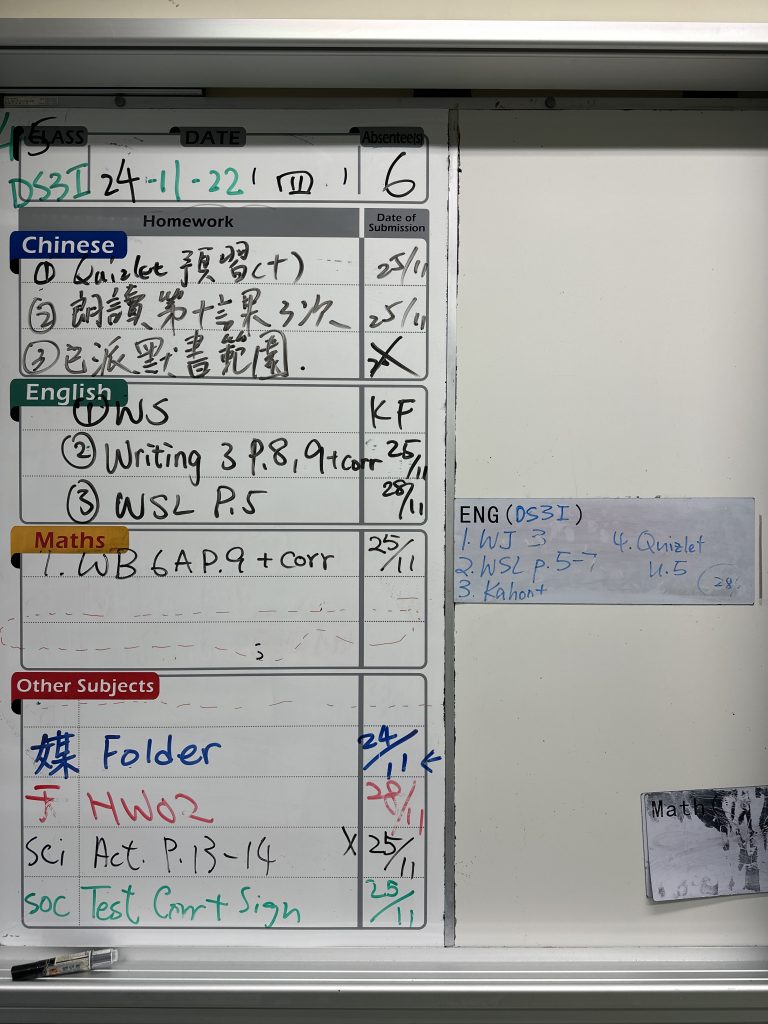 CLASS DATE Absentee(s)
DS3I 24-11-22 (四) 6
Homework Date of Submission
Chinese
① Quizlet 預習(十) 25/11
② 朗讀第十課3次 25/11
③ 已派默書範圍.
English
① WS KF
② Writing 3 P.8,9+corr 25/11
③ WSL P.5 28/11
Maths
1. WB 6A P.9 + corr 25/11
Other Subjects
媒 Folder 24/11 ←
HW02 28/11
Sci Act. P.13-14 X 25/11
SOC Test Corr+ Sign 25/11
ENG(DS3I)
1. WJ 3 4. Quizlet
2. WSL p.5-7 U.5
3. Kahoot 28
Math